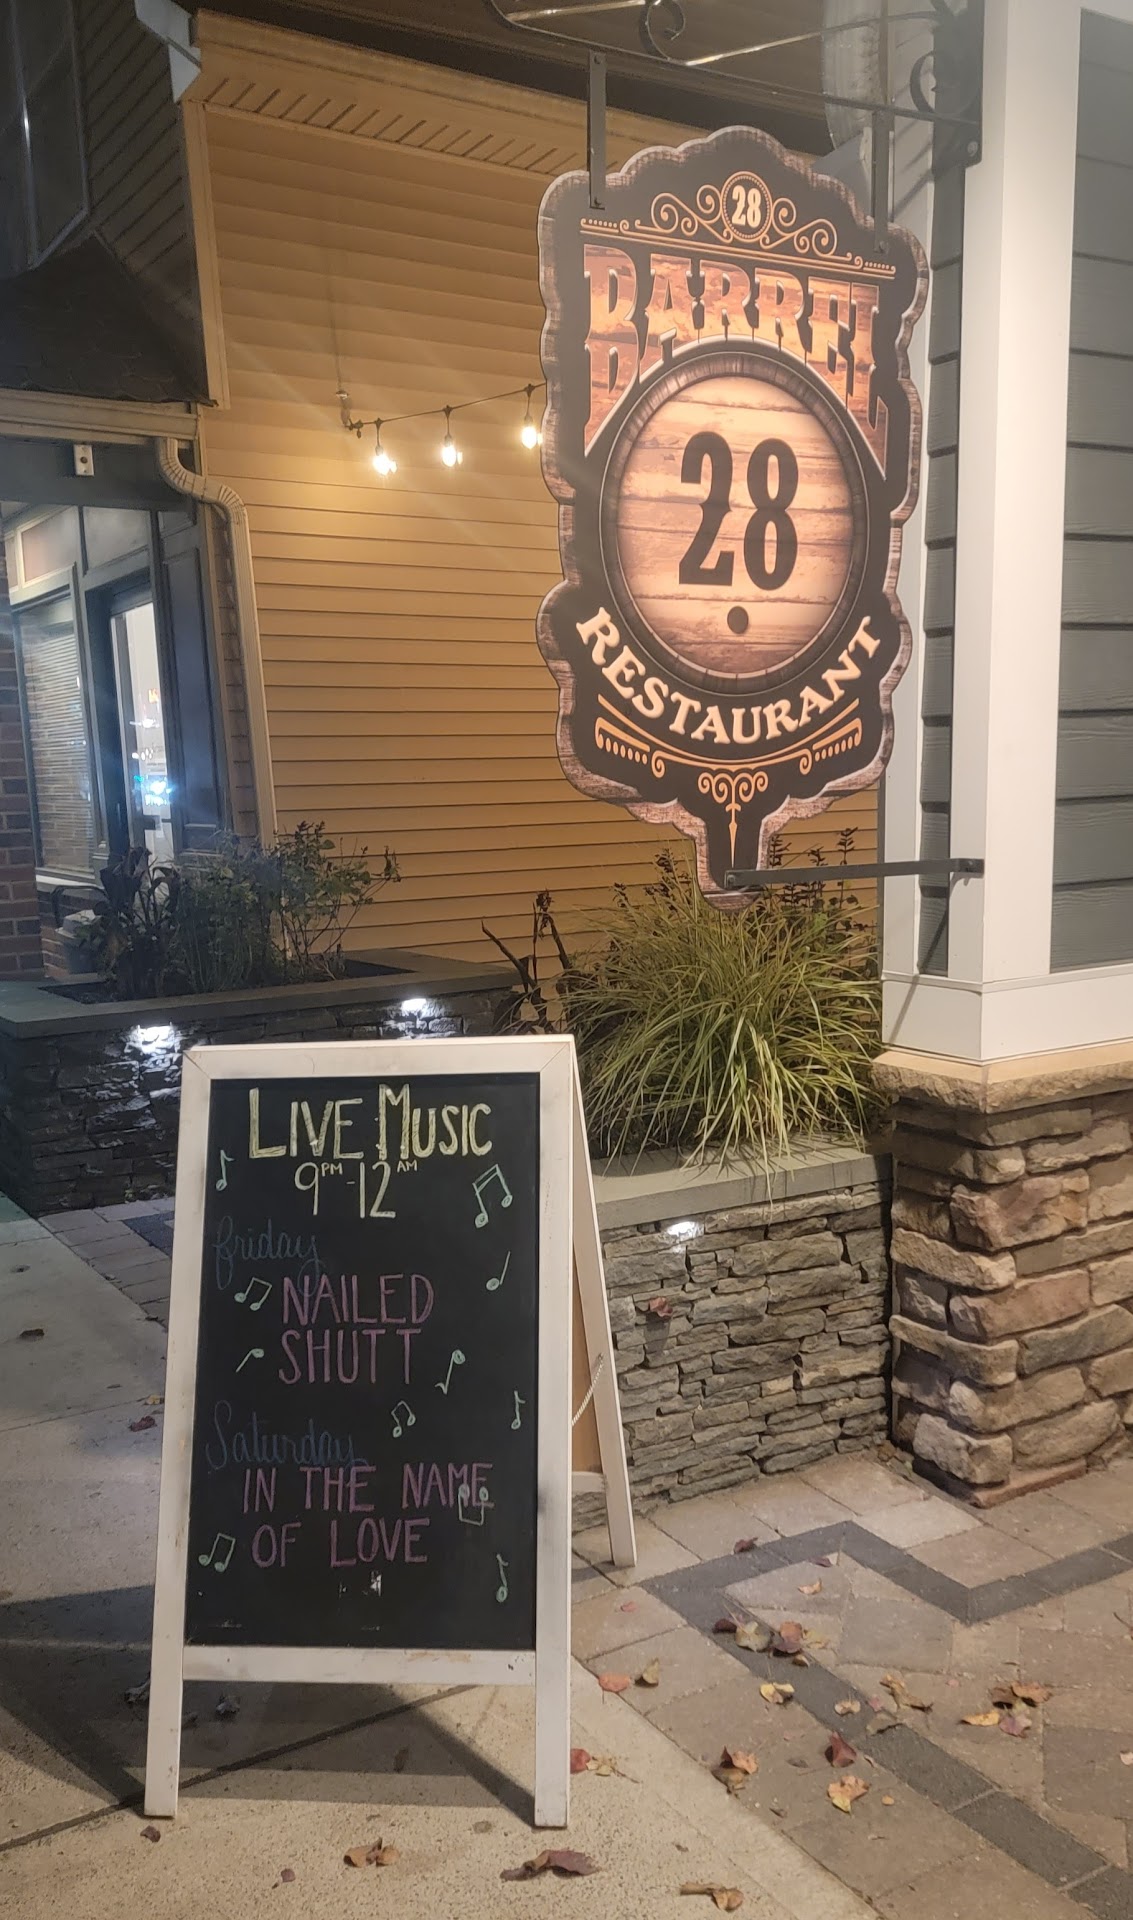 28
BARREL
28
RESTAURANT
LIVE MUSIC
9PM-12AM
friday
NAILED
SHUTT
Saturday
IN THE NAME
OF LOVE